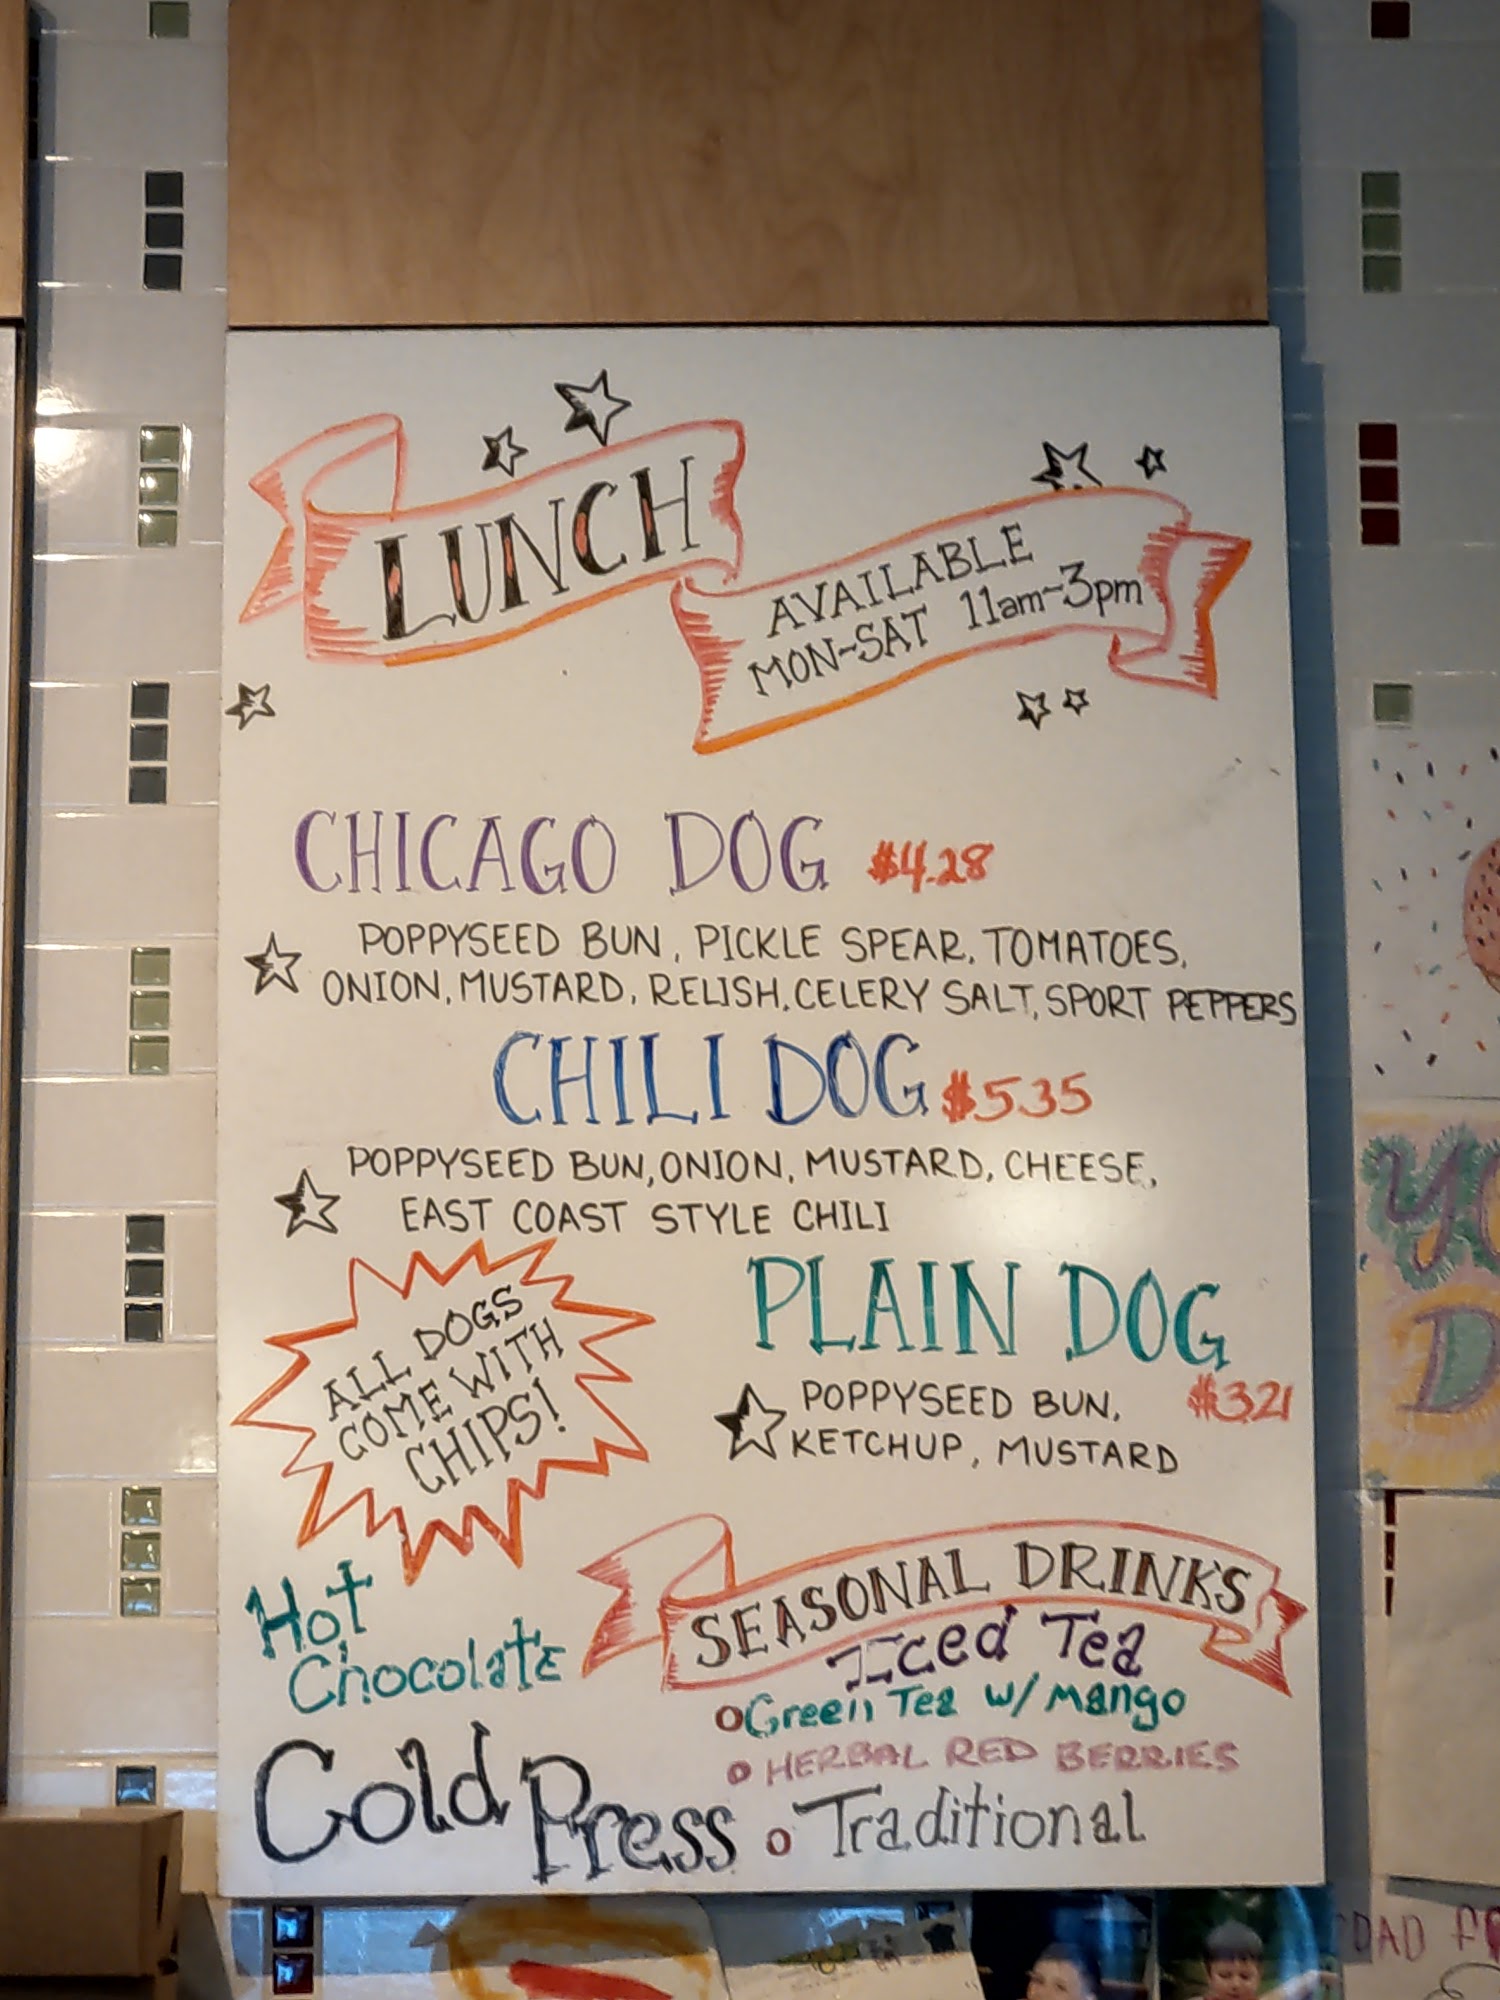 LUNCH
AVAILABLE
MON-SAT 11am-3pm
CHICAGO DOG $4.28
POPPYSEED BUN, PICKLE SPEAR, TOMATOES,
ONION, MUSTARD, RELISH, CELERY SALT, SPORT PEPPERS
CHILI DOG $5.35
POPPYSEED BUN, ONION, MUSTARD, CHEESE,
EAST COAST STYLE CHILI
ALL DOGS
COME WITH
CHIPS!
PLAIN DOG
$3.21
POPPYSEED BUN,
KETCHUP, MUSTARD
Hot
Chocolate
Cold
Press
SEASONAL DRINKS
Iced Tea
Green Tea w/ Mango
HERBAL RED BERRIES
Traditional
DAD